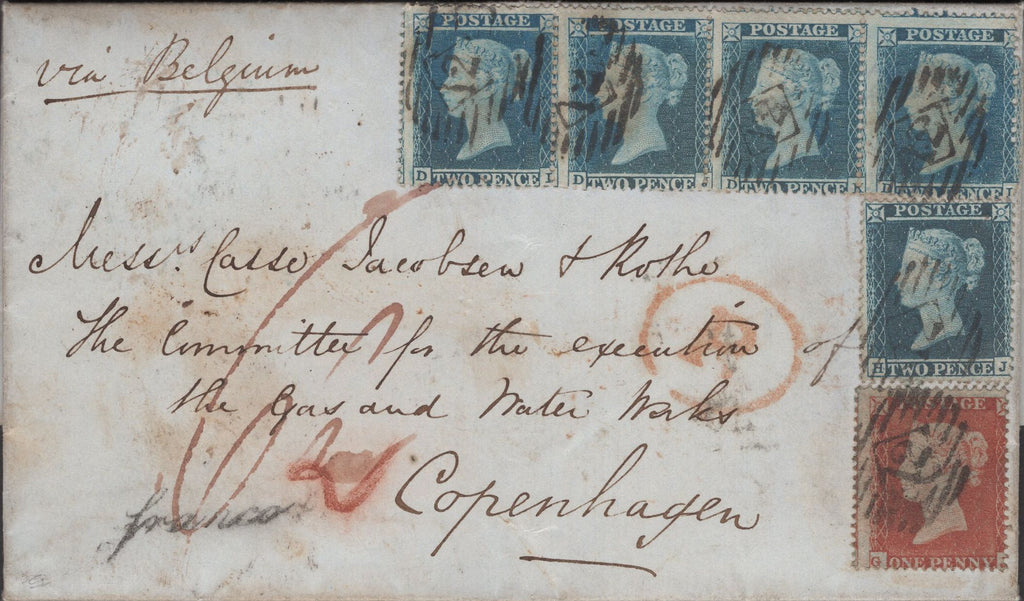 via Belgium
POSTAGE POSTAGE POSTAGE POSTAGE
D TWO PENCE I D TWO PENCE D TWO PENCE K TWO PENCE
Messrs. Casse Jacobsen & Rothe
POSTAGE
The Committee for the execution of
H TWO PENCE J
the Gas and Water Works
Copenhagen
franco
G ONE PENNY